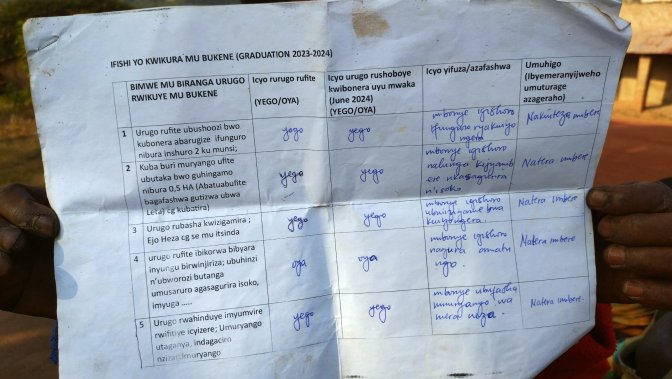 IFISHI YO KWIKURA MU BUKENE (GRADUATION 2023-2024)
BIMWE MU BIRANGA URUGO
RWIKUYE MU BUKENE
Icyo rurugo rufite
(YEGO/OYA)
Icyo urugo rushoboye
kwibonera uyu mwaka
(June 2024)
(YEGO/OYA)
Icyo yifuza/azafashwa
Umuhigo
(Ibyemeranyijweho
umuturage
azageraho)
1
Urugo rufite ubushoozi bwo
kubonera abarugize ifunguro
nibura inshuro 2 ku munsi;
yego
yego
mbonye igishoro
Nakwiteza imbere
2
Kuba buri muryango ufite
ubutaka bwo guhingamo
nibura 0,5 HA (Abatuabufite
bagafashwa gutizwa ubwa
Leta) cg kubatira)
yego
yego
mbonye igishoro
n'isoko
Natera imbere
3
Urugo rubasha kwizigamira ;
Ejo Heza cg se mu itsinda
yego
yego
mbonye igishoro
Natera imbere
4
urugo rufite ibikorwa bibyara
inyungu birwinjiriza; ubuhinzi
n'ubworozi butanga
umusaruro agasagurira isoko,
imyuga .....
oya
oya
mbonye igishoro
nagura amatu
ngo.
Natera imbere
5
Urugo rwahinduye imyumvire
rwifitiye icyizere; Umuryango
utaganya, indagaciro
nzizar:muryango
yego
yego
mbonye ubufasha
umuryango wa
mera neza.
Natera imbere.